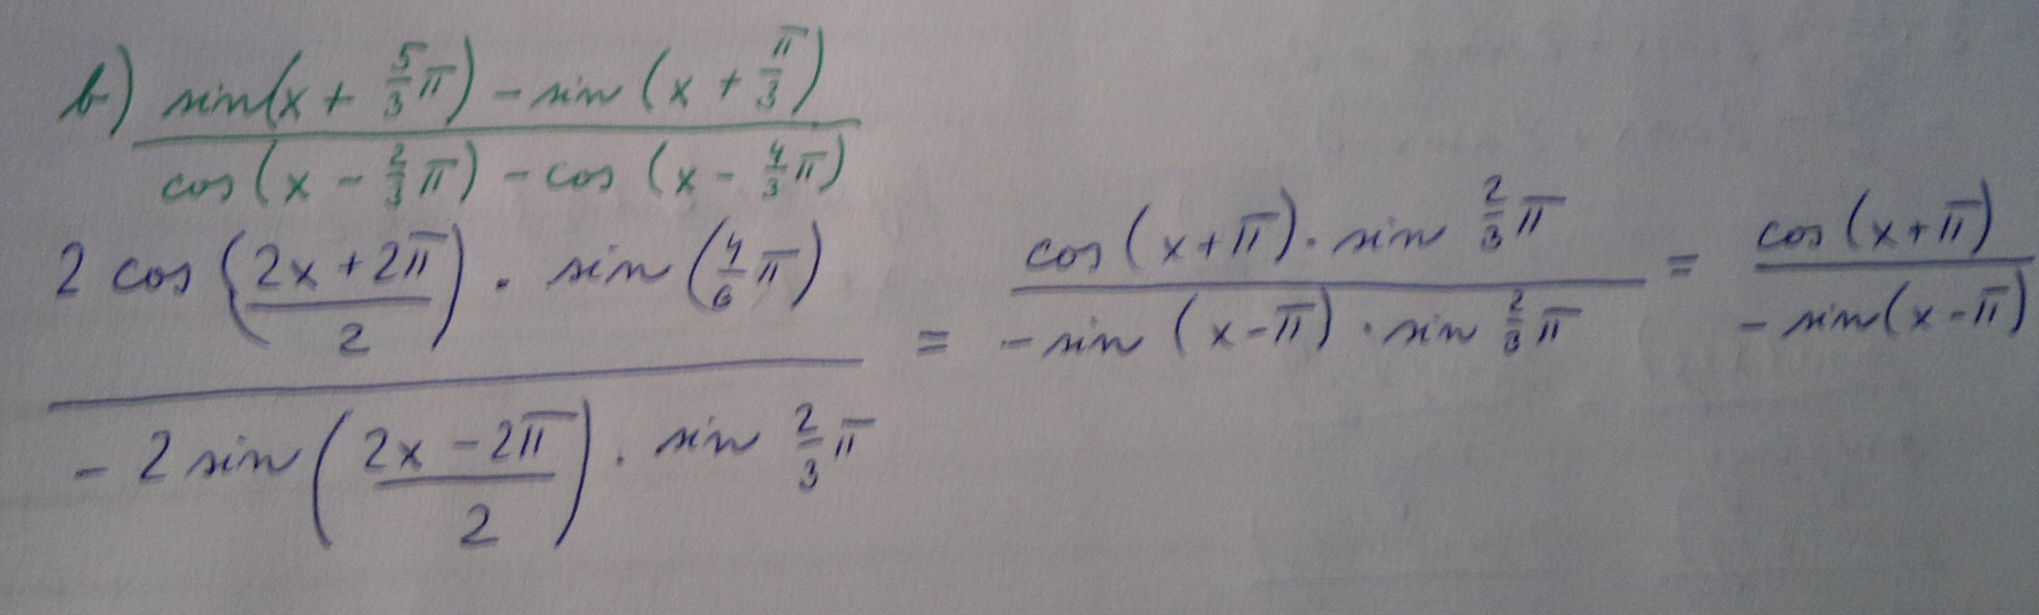 b) \frac{sin(x + \frac{5}{3}π) - sin(x + \frac{π}{3})}{cos(x - \frac{2}{3}π) - cos(x - \frac{4}{3}π)}
\frac{2 cos(\frac{2x + 2π}{2}) · sin(\frac{4}{6}π)}{-2 sin(\frac{2x - 2π}{2}) · sin \frac{2}{3}π} = \frac{cos(x + π) · sin \frac{2}{3}π}{-sin(x - π) · sin \frac{2}{3}π} = \frac{cos(x + π)}{-sin(x - π)}